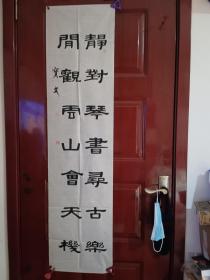 靜對琴書尋古樂
閒觀雲山會天機